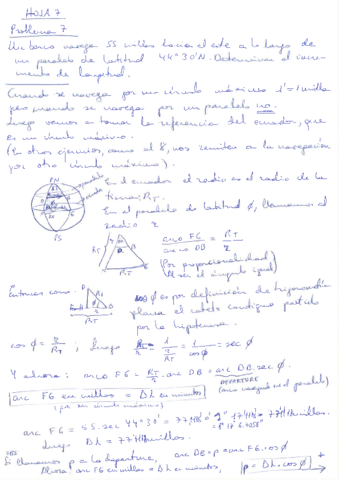 HOJA 7
Problema 7
Un barco navega 55 millas hacia el este a lo largo de
un paralelo de latitud 44°30'N. Determinar el incre-
mento de longitud.
Cuando se navega por un círculo máximo 1'=1milla
pero cuando se navega por un paralelo no.
Luego vamos a tomar la referencia del ecuador, que
es un círculo máximo.
(En otros ejercicios, como el 8, nos remiten a la navegación
por otro círculo máximo).
PN
En el ecuador el radio es el radio de la
tierra: RT.
En el paralelo de latitud φ, llamamos al
radio r
PS
arco FG / arco DB = RT / r
(Por proporcionalidad
al ser el ángulo igual)
Entonces como:
φ es por definición de trigonometría
plana el cateto contiguo partido
por la hipotenusa.
cos φ = r / RT ; Luego RT / r = 1 / (r / RT) = 1 / cos φ = sec φ
Y ahora: arco FG = RT / r . arc DB = arc DB. sec φ
APARTAMIENTO
(arco navegado en el paralelo)
arc FG en millas = Δh en minutos
(por ser círculo máximo)
arc FG = 55. sec 44°30' = 77,11
Luego Δh = 77,11 millas.
Si llamamos p a la departure, arc DB = p = arc FG. cos φ
Ahora arc FG en millas = Δh en minutos, p = Δh. cos φ